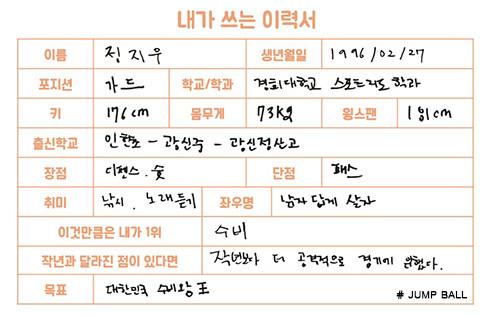 내가 쓰는 이력서
이름 정지우 생년월일 1996/02/27
포지션 가드 학교/학과 경희대학교 스포츠지도학과
키 176cm 몸무게 73kg 윙스팬 181cm
출신학교 인헌초 - 광신중 - 광신정산고
장점 디펜스. 슛 단점 패스
취미 낚시. 노래듣기 좌우명 남자답게 살자
이것만큼은 내가 1위 수비
작년과 달라진 점이 있다면 작년보다 더 공격적으로 경기에 임한다.
목표 대한민국 수비왕王
# JUMP BALL